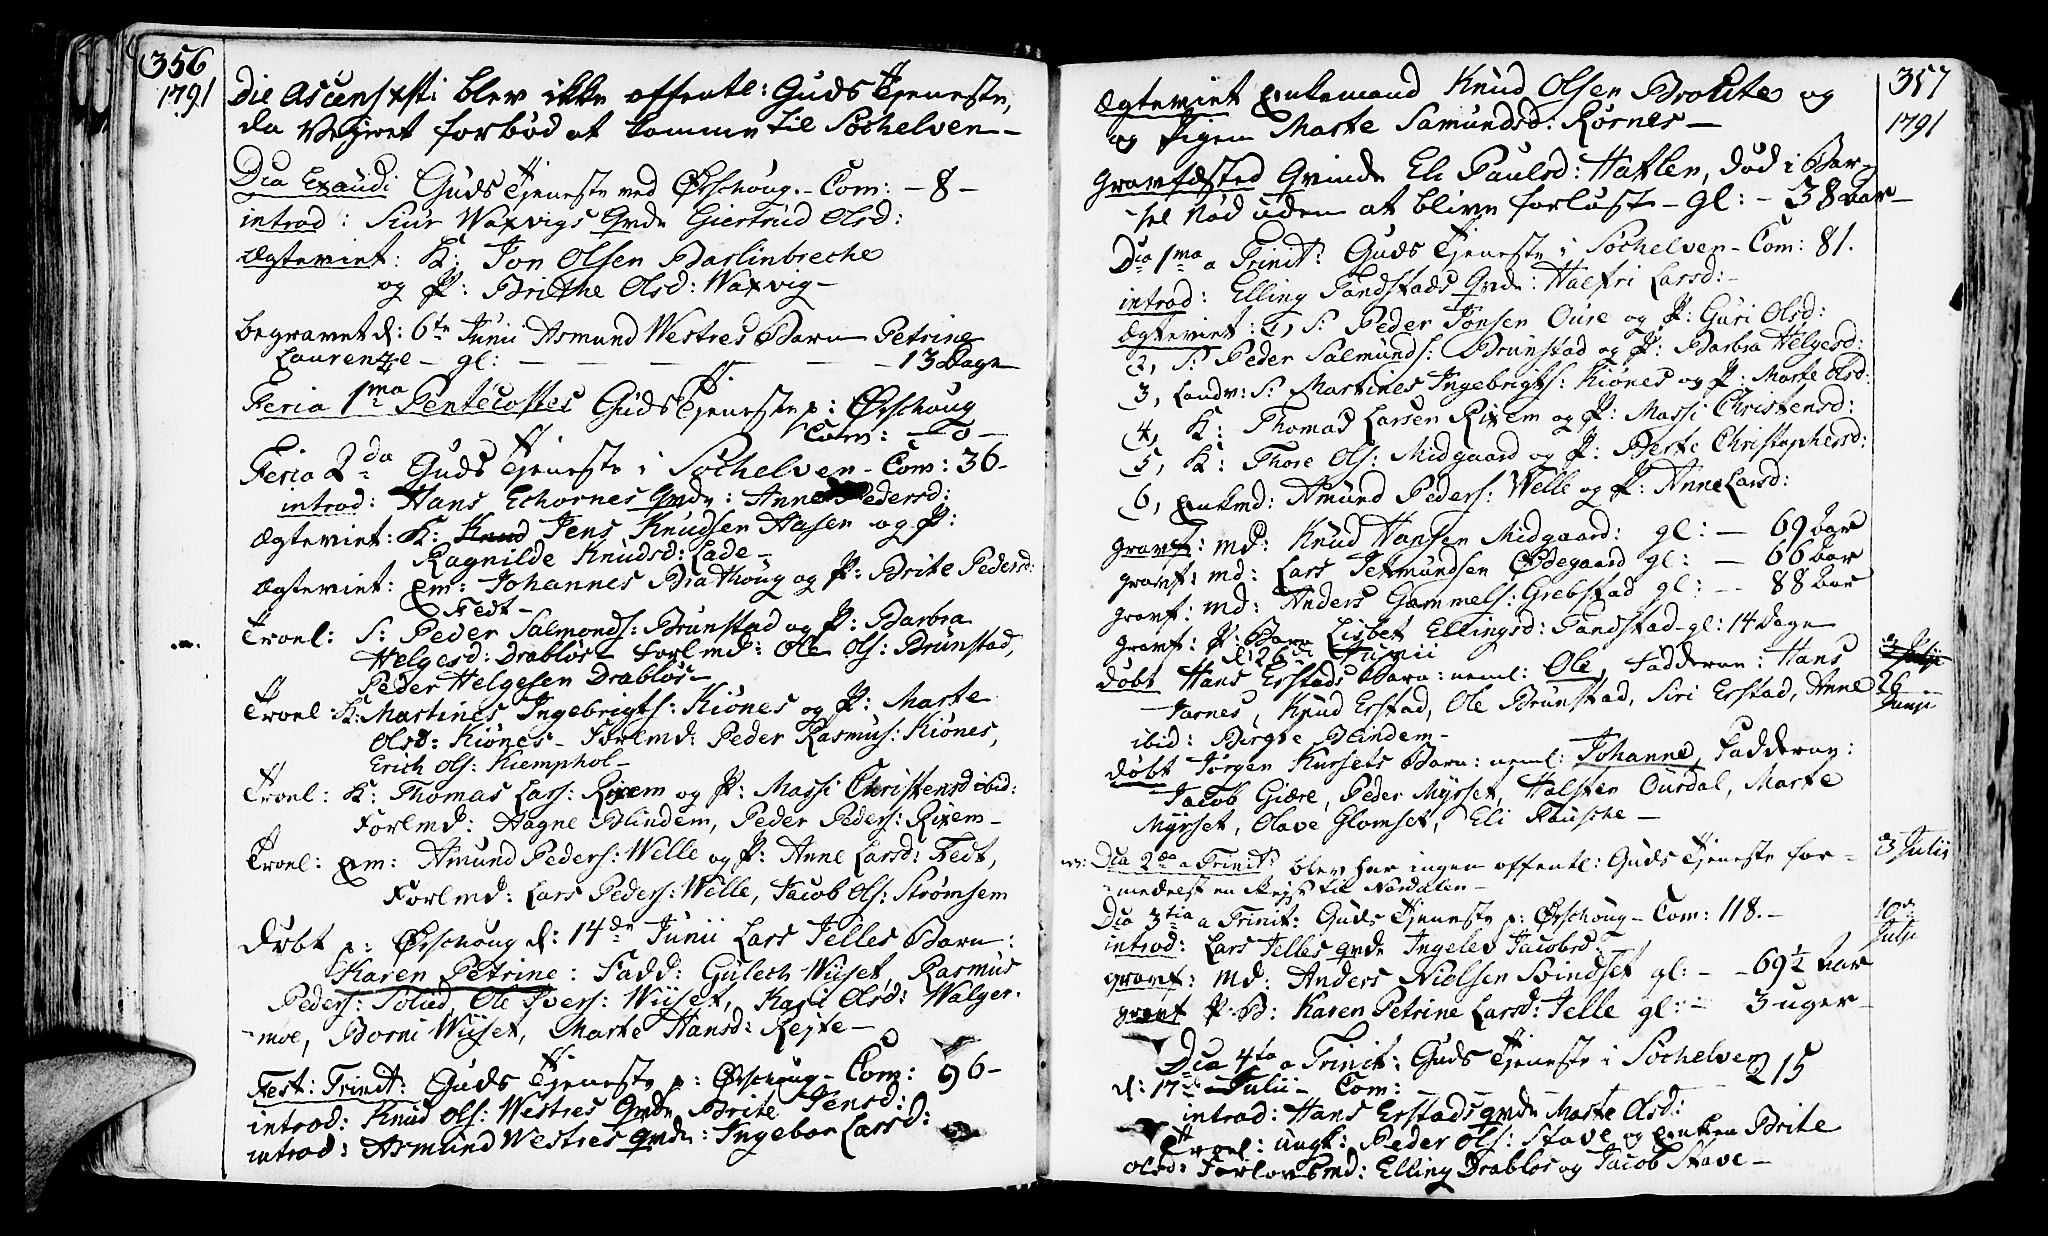 356
1791
Die Ascens: xsti blev ikke offentl: Guds Tjeneste,
da Vejret forbød at komme til Søchelven –
Dca Exaudi Guds Tjeneste ved Ørschoug. – Com: – 8 –
introd: Siur Waxvigs Qvde Giertrud Olsd:
Ægteviet: K: Jon Olsen Barlinbreche
og P: Brithe Olsd: Waxvig –
begravet d: 6te Junii Asmund Westres Barn Petrine
Laurenze – gl: – – – – 13 Dage
Feria 1ma Pentecostes Guds Tjeneste p: Ørschoug
Com: – 0 –
Feria 2da Guds Tjeneste i Søchelven – Com: 36 –
introd: Hans Echornes Qvde: Anne Pedersd:
Ægteviet: K: Knud Jens Knudsen Aasen og P:
Ragnilde Knudsd: Lade –
Ægteviet: Em: Johannes Brathoug og P: Brite Pedersd:
Fedt –
Troel: S: Peder Salmonds: Brunstad og P: Barbra
Helgesd: Drabløs – Forlmd: Ole Ols: Brunstad,
Peder Helgesen Drabløs –
Troel: K: Martines Ingebrigts: Kiønes og P: Marte
Olsd: Kiønes – Forlmd: Peder Rasmus: Kiønes,
Erich Ols: Kiemphol –
Troel: K: Thomas Lars: Rixem og P: Massi Christensd ibid:
Forlmd: Aagne Blindem, Peder Peders: Rixem –
Troel: Em: Amund Peders: Welle og P: Anne Larsd: Fedt,
Forlmd: Lars Peders: Welle, Jacob Ols: Strømsem
Døbt p: Ørschoug d: 14de Junii Lars Jelles Barn:
Karen Petrine: Fadd: Gulech Wiiset, Rasmus
Peders: Solud, Ole Ivers: Wiiset, Kari Olsd: Walger-
moe, Borni Wiiset, Marte Hansd: Rejte –
Fest: Trinit: Guds Tjeneste p: Ørschoug – Com: 96 –
introd: Knud Ols: Westres Qvde Brite Jensd:
introd: Asmund Westres Qvde: Ingebor Larsd:
357
1791
Ægteviet Enkemand Knud Olsen Brolite og
og Pigen Marte Samundsd: Rørnes –
Gravfæsted Qvinde Eli Paulsd: Hatlen, død i Bar-
sel Nød uden at blive forløst – gl: – 38 Aar –
Dca 1ma a Trinit: Guds Tjeneste i Søchelven – Com: 81.
introd: Elling Tandstads Qvde: Halfri Larsd: –
Ægteviet: 1, S: Peder Jonsen Oure og P: Guri Olsd:
2, S: Peder Salmunds: Brunstad og P: Barbra Helgesd:
3, Landv: S: Martines Ingebrigts: Kiønes og P: Marte Olsd:
4, K: Thomas Larsen Rixem og P: Massi Christensd:
5, K: Thore Ols: Midgaard og P: Berte Christophersd:
6, Enkmd: Amund Peders: Welle og P: Anne Larsd:
gravf: md: Knud Hansen Midgaard: gl: – 69 Aar
gravf: md: Lars Jermundsen Ødegaard gl: – 66 Aar
gravf: md: Anders Gammels: Grebstad gl: – 88 Aar
gravf: P: Barn Lisbet Ellingsd: Tandstad – gl: 14 Dage
d: 26de Junii
døbt Hans Erstads Barn: neml: Ole, Fadderne: Hans
3 Julii
26 Junii
Jarnes, Knud Erstad, Ole Brunstad, Siri Erstad, Anne
ibid: Birgte Blindem –
døbt Jørgen Kursets Barn: neml: Johanne, Fadderne:
Jacob Giære, Peder Myrset, Halsten Oursdal, Marte
Myrset, Olave Glomset, Eli Rusche –
Dca 2da a Trinit: blev her ingen offentl: Guds Tjeneste for-
3 Julii
medelst en Rejse til Nordalen –
Dca 3tia a Trinit: Guds Tjeneste p: Ørschoug – Com: 118. –
10de Julii
introd: Lars Jelles qvde Ingelev Jacobsd: –
gravf: md: Anders Nielsen Svindset gl: – 69½ Aar
gravf P: B: Karen Petrine Larsd: Jelle gl: – 3 uger –
Dca 4ta a Trinit: Guds Tjeneste i Søchelven
d: 17de Julii – Com: – – – 215
introd: Hans Erstads qvde Marte Olsd:
Troel: ungk: Peder Ols: Stave og Enken Brite
Olsd: Forlovmd: Elling Drabløs og Jacob Stave –